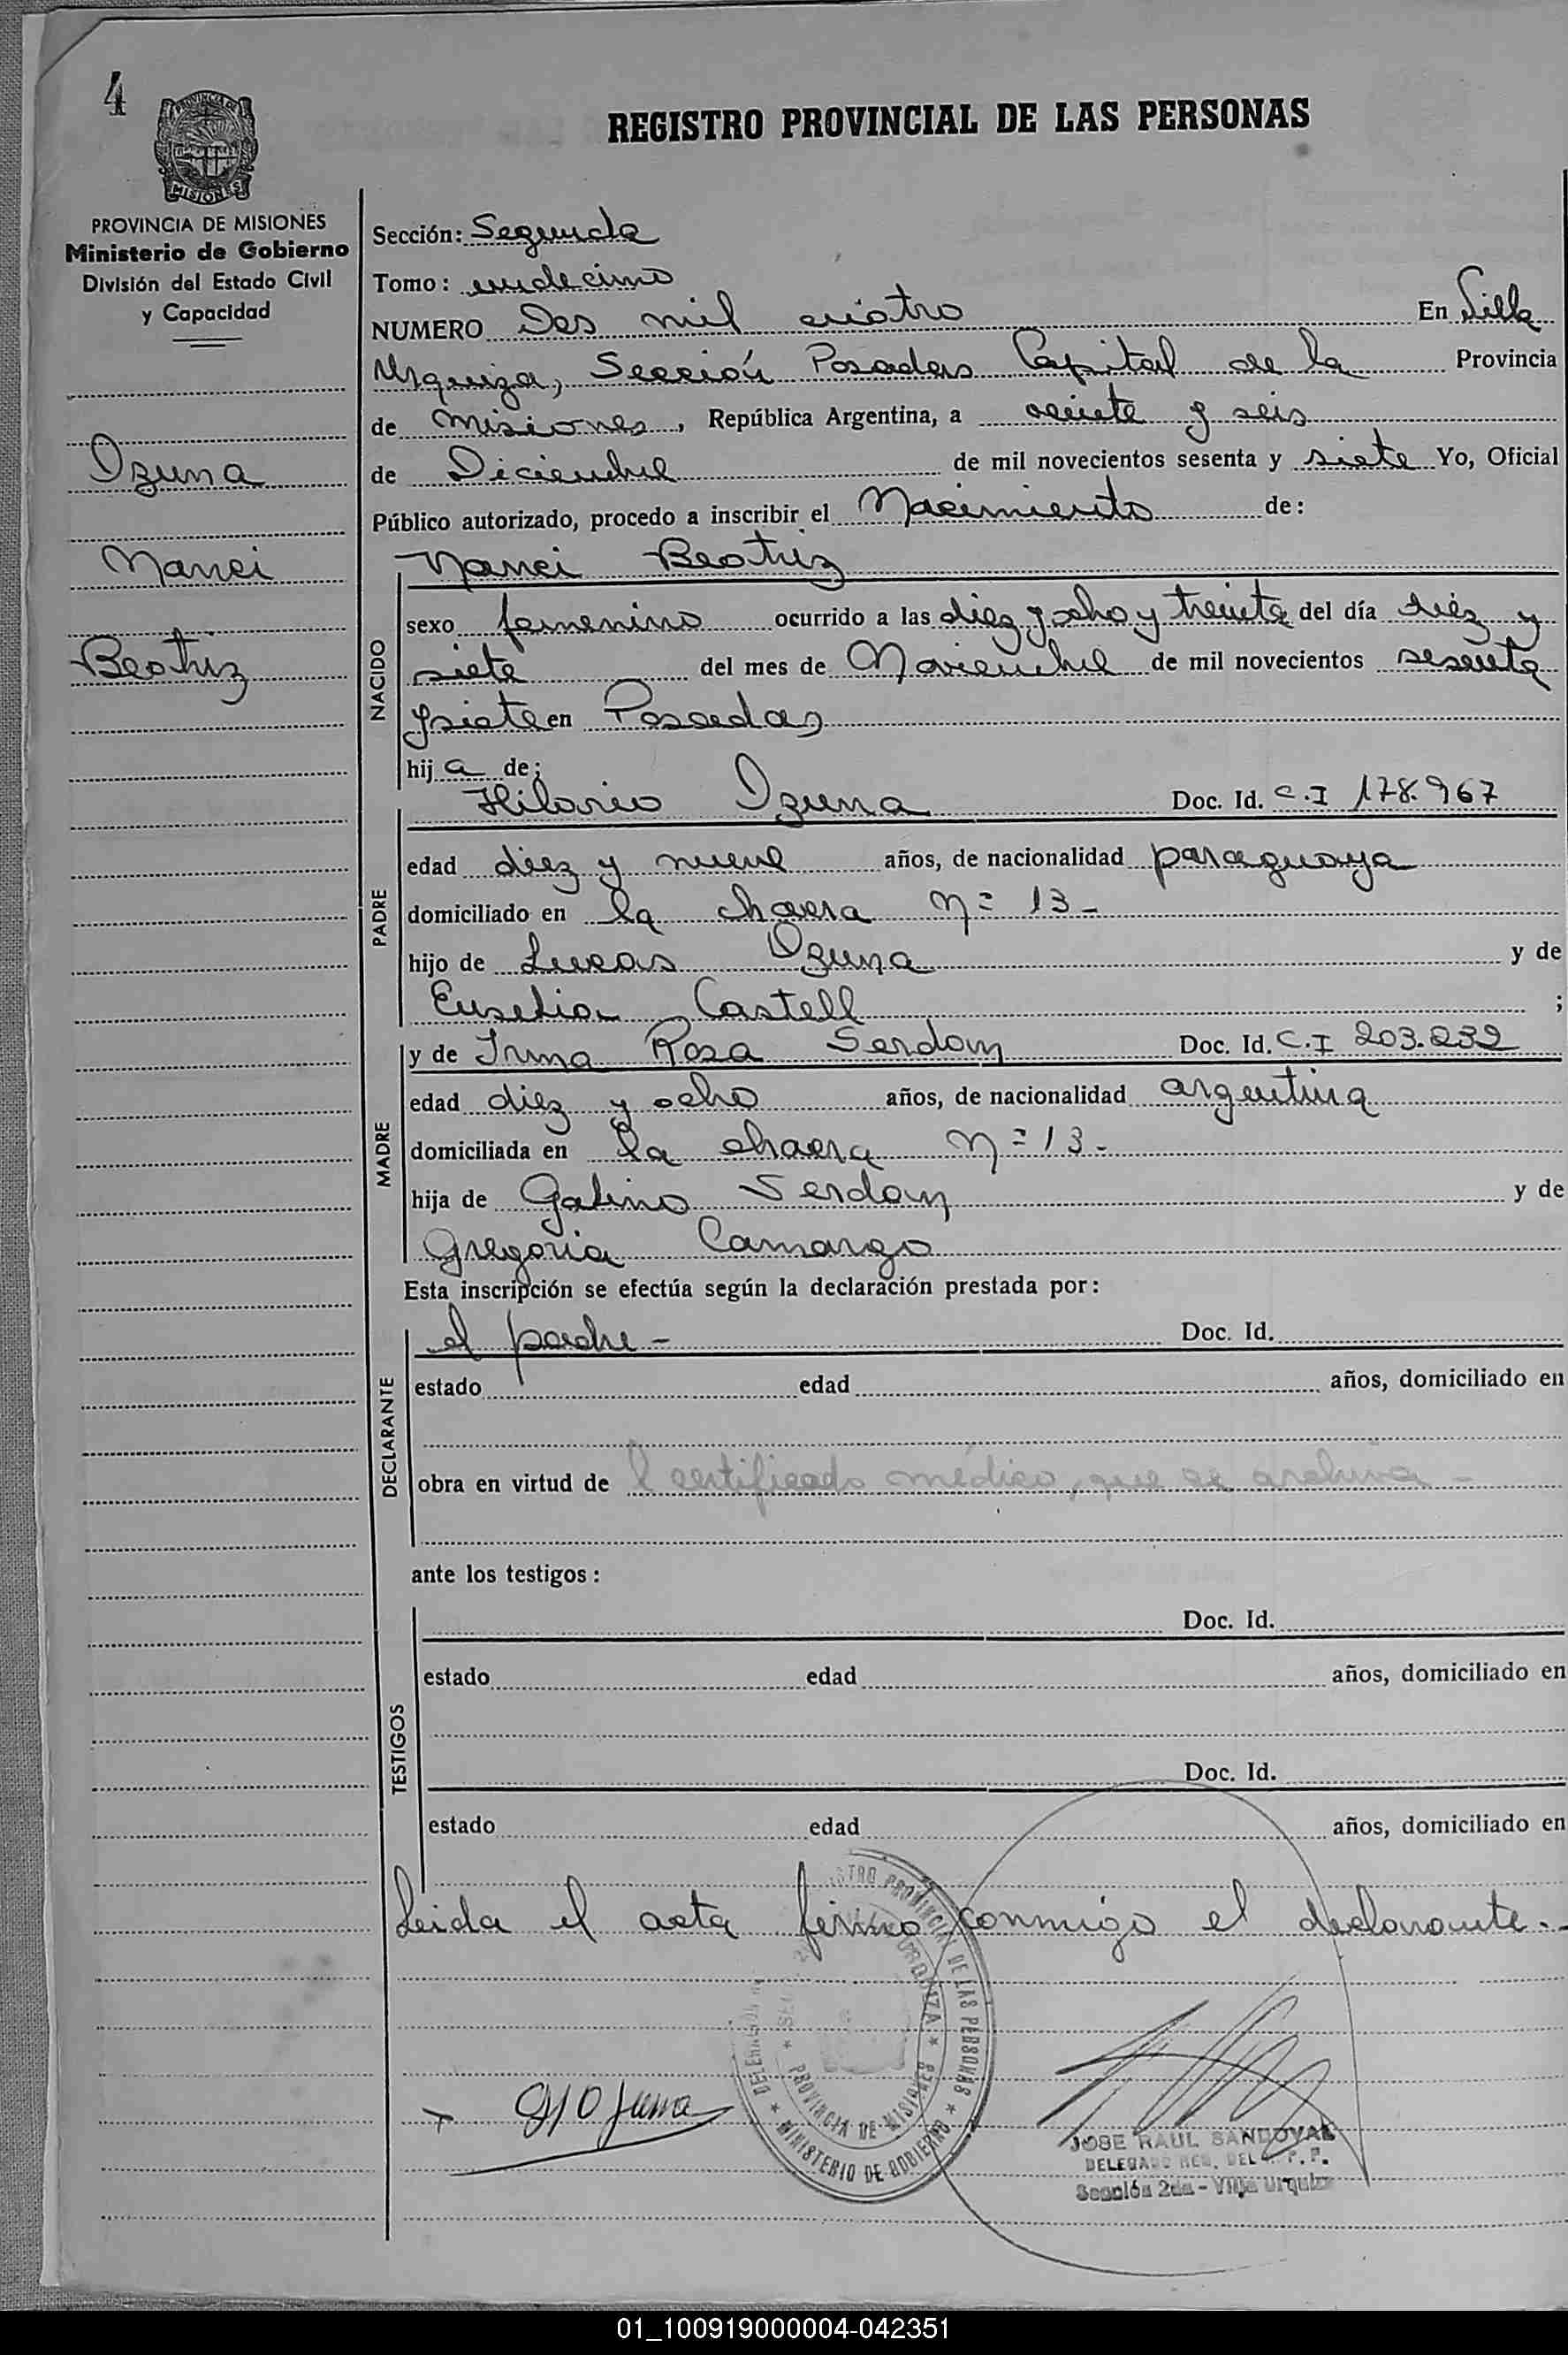 4
REGISTRO PROVINCIAL DE LAS PERSONAS
PROVINCIA DE MISIONES
MISIONES
Ministerio de Gobierno
División del Estado Civil
y Capacidad
Ozuna
Nanci
Beatriz
Sección: Segunda
Tomo: undecimo
NUMERO Dos mil cuatro En Villa
Urquiza, Sección Posadas Capital de la Provincia
de Misiones, República Argentina, a veinte y seis
de Diciembre de mil novecientos sesenta y siete Yo, Oficial
Público autorizado, procedo a inscribir el Nacimiento de:
NACIDO
Nanci Beatriz
sexo femenino ocurrido a las diez y ocho y treinta del día diez y
siete del mes de Noviembre de mil novecientos sesenta
y siete en Posadas
hija de;
PADRE
Hilario Ozuna Doc. Id. C.I 178.967
edad diez y nueve años, de nacionalidad paraguaya
domiciliado en la chacra Nº 13-
hijo de Lucas Ozuna y de
Eusebia Castell ;
MADRE
y de Irma Rosa Serdan Doc. Id. C.I 203.232
edad diez y ocho años, de nacionalidad argentina
domiciliada en la chacra Nº 13-
hija de Gabino Serdan y de
Gregoria Camargo
Esta inscripción se efectúa según la declaración prestada por:
DECLARANTE
el padre- Doc. Id.
estado edad años, domiciliado en
obra en virtud de l certificado médico, que se archiva-
ante los testigos:
TESTIGOS
Doc. Id.
estado edad años, domiciliado en
Doc. Id.
estado edad años, domiciliado en
Leida el acta firma conmigo el declarante.-
PROVINCIAL DE LAS PERSONAS * MINISTERIO DE GOBIERNO *
URQUIZA * PROVINCIA DE MISIONES
Ozuna
JOSE RAUL SANDOVAL
DELEGADO REG. DEL
Sección 2da - Villa Urquiza
01_100919000004-042351